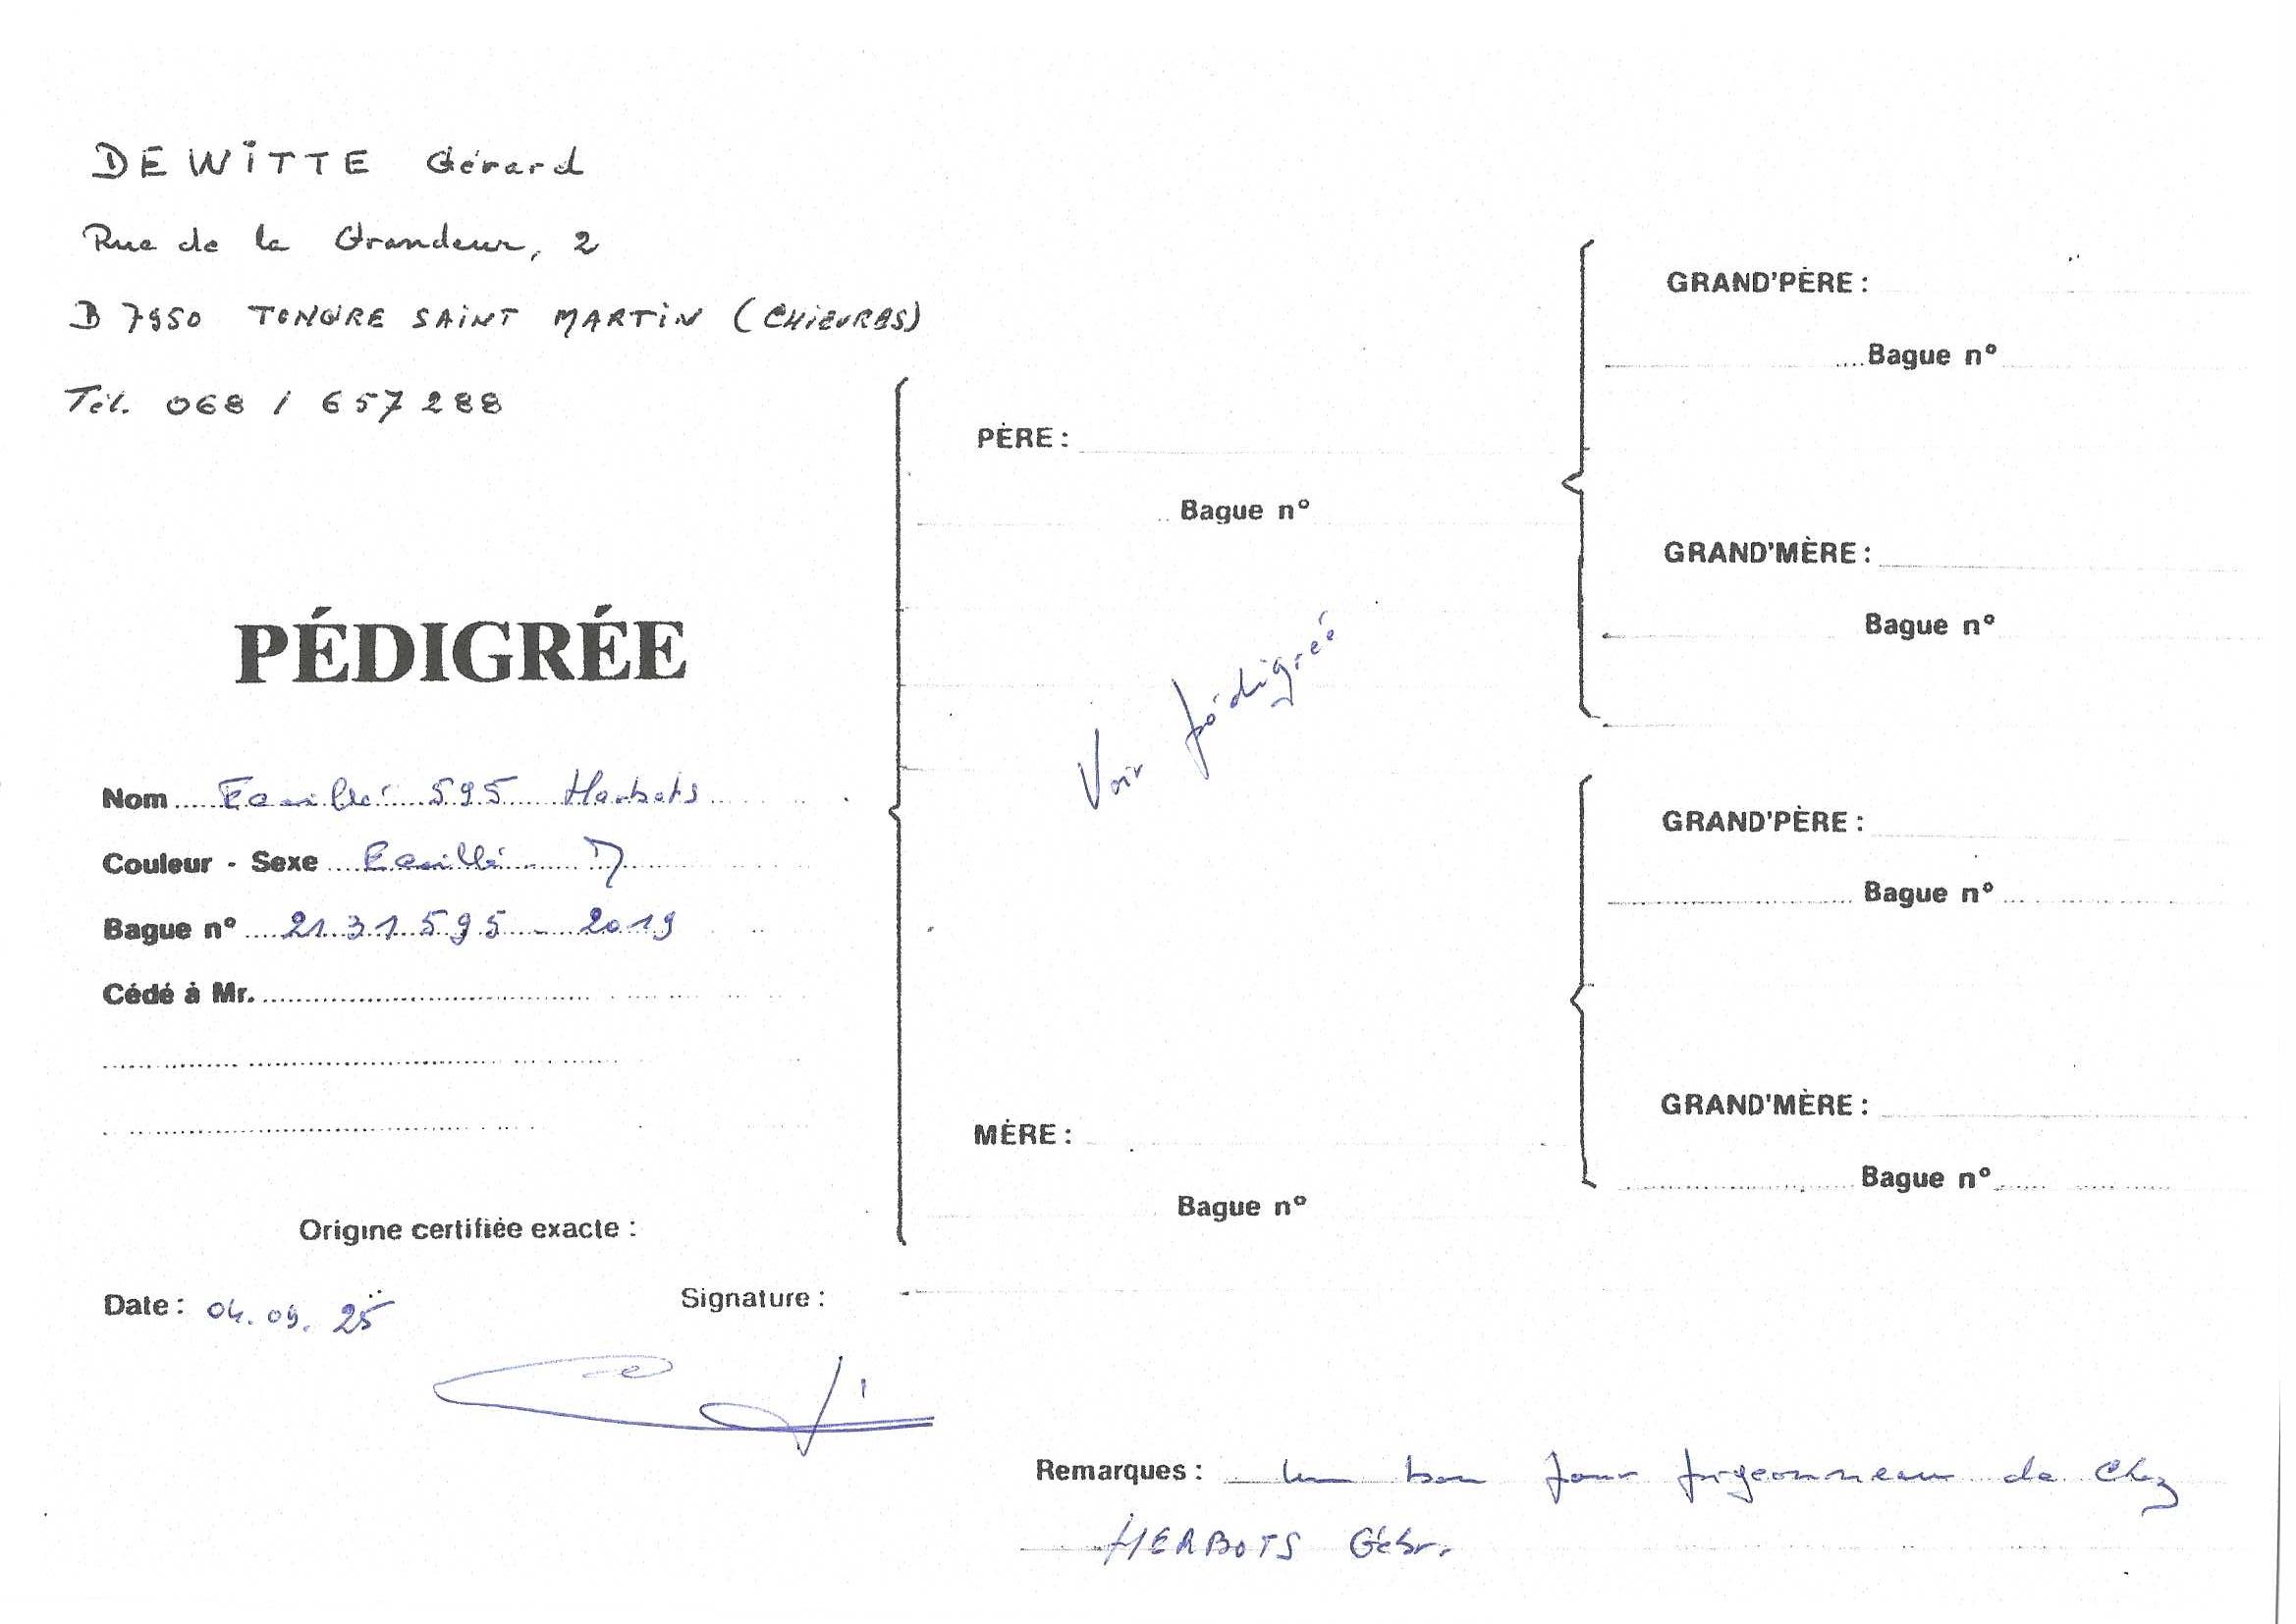 DEWITTE Gérard
Rue de la Grandeur, 2
B 7950 TONGRE SAINT MARTIN (CHIEVRES)
Tél. 068 / 657 288
PÉDIGRÉE
Nom Ecaillé 595 Herbots
Couleur - Sexe Ecaillé
Bague n° 2131595 - 2019
Cédé à Mr.
Origine certifiée exacte :
Date : 04.09.25
Signature :
PÈRE :
Bague n°
Voir pédigréé
MÈRE :
Bague n°
GRAND'PÈRE :
Bague n°
GRAND'MÈRE :
Bague n°
GRAND'PÈRE :
Bague n°
GRAND'MÈRE :
Bague n°
Remarques : Un bon pour pigeonneau de chez
HERBOTS Gébr.